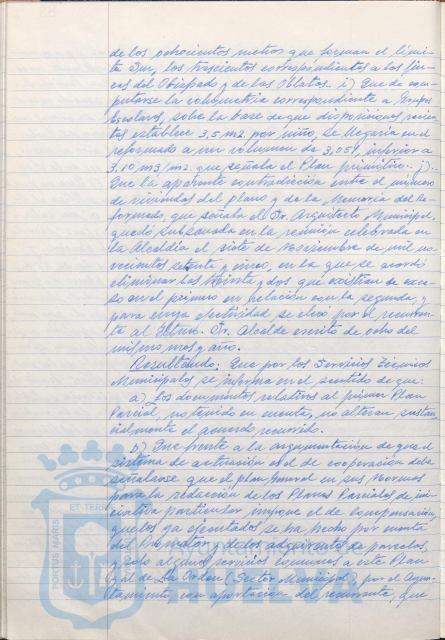 de los ochocientos metros que forman el lími-
te Sur, los trescientos correspondientes a las fin-
cas del Obispado y de las Oblatas. i) Que de com-
putarse la volumetría correspondiente a Grupos
Escolares, sobre la base de que disposiciones recien-
tes establece 3,5 m2. por niño, se llegaría en el
reformado a un volumen de 3,051, inferior a
3,10 m3/m2. que señala el Plan primitivo. j).-
Que la aparente contradicción entre el número
de viviendas del plano y de la Memoria del Re-
formado, que señala el Sr. Arquitecto Municipal,
quedó subsanada en la reunión celebrada en
la Alcaldía el siete de Noviembre de mil no-
vecientos setenta y cinco, en la que se acordó
eliminar las treinta y dos que existían de exce-
so en el primero en relación con la segunda, y
para cuya efectividad se elevó por el recurren-
te al Iltmo. Sr. Alcalde escrito de ocho del
mismo mes y año.
Resultando: Que por los Servicios Técnicos
Municipales se informa en el sentido de que:
a) Los documentos relativos al primer Plan
Parcial, no tenido en cuenta, no alteran sustan-
cialmente el acuerdo recurrido.
b) Que frente a la argumentación de que el
sistema de actuación es el de cooperación debe
señalarse que el plan General en sus Normas
para la redacción de los Planes Parciales de ini-
ciativa particular impone el de compensación,
que los ya ejecutados se ha hecho por cuenta
del Promotor y de los adquirentes de parcelas,
y solo algunos servicios comunes a este Plan
y al de La Orden (Sector Municipal) por el Ayun-
tamiento con aportación del recurrente, que
ET TERRAE
PORTUS MARIS
HUELVA